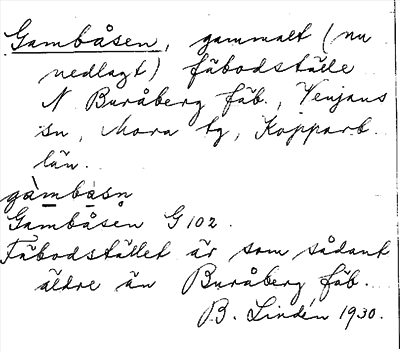 Gambåsen, gammalt (nu
nedlagt) fäbodställe
N Buråberg fäb., Venjans
sn, Mora tg, Kopparb.
län.
gàmbåsn
Gambåsen G 102.
Fäbodstället är som sådant
äldre än Buråberg fäb.
B. Lindén 1930.